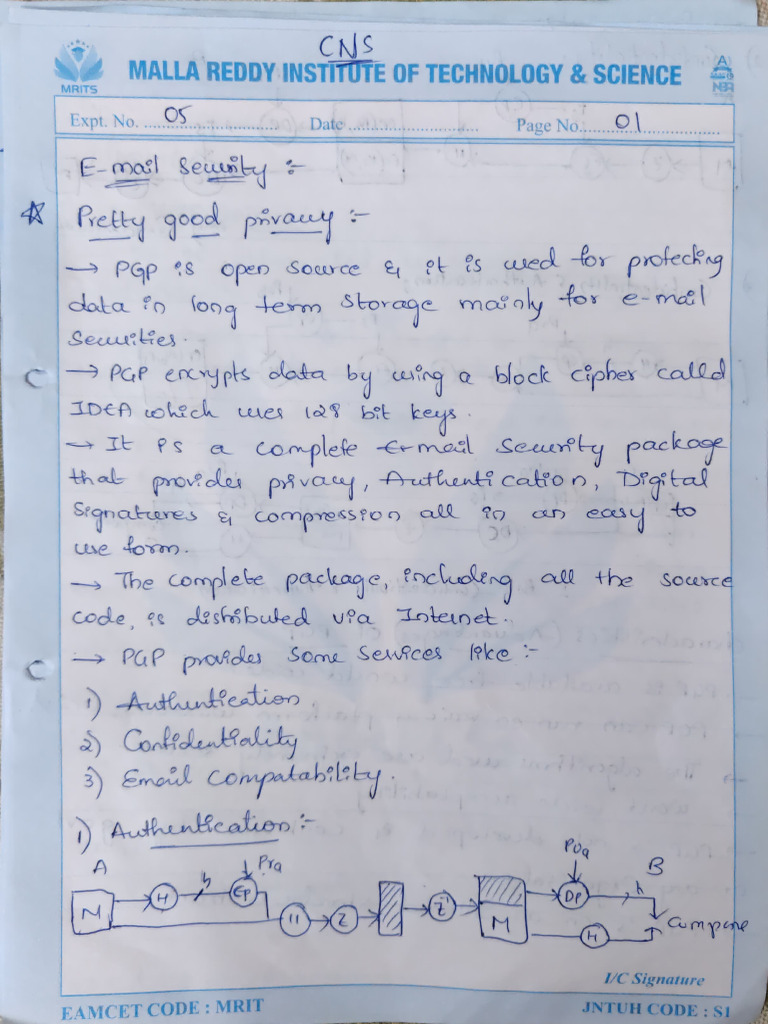 CNS
MRITS
MALLA REDDY INSTITUTE OF TECHNOLOGY & SCIENCE
Expt. No. 05 Date Page No. 01
E-mail Security :-
Pretty good privacy :-
→ PGP is open source & it is used for protecting
data in long term storage mainly for e-mail
Securities.
→ PGP encrypts data by using a block cipher called
IDEA which uses 128 bit keys.
→ It is a complete E-mail Security package
that provides privacy, Authentication, Digital
Signatures & compression all in an easy to
use form.
→ The complete package, including all the source
code, is distributed via Internet.
→ PGP provides some services like :-
1) Authentication
2) Confidentiality
3) Email compatability.
1) Authentication :-
A Pra PUa B
M H h EP || Z Z⁻¹ M DP h H Compare
I/C Signature
EAMCET CODE : MRIT JNTUH CODE : S1